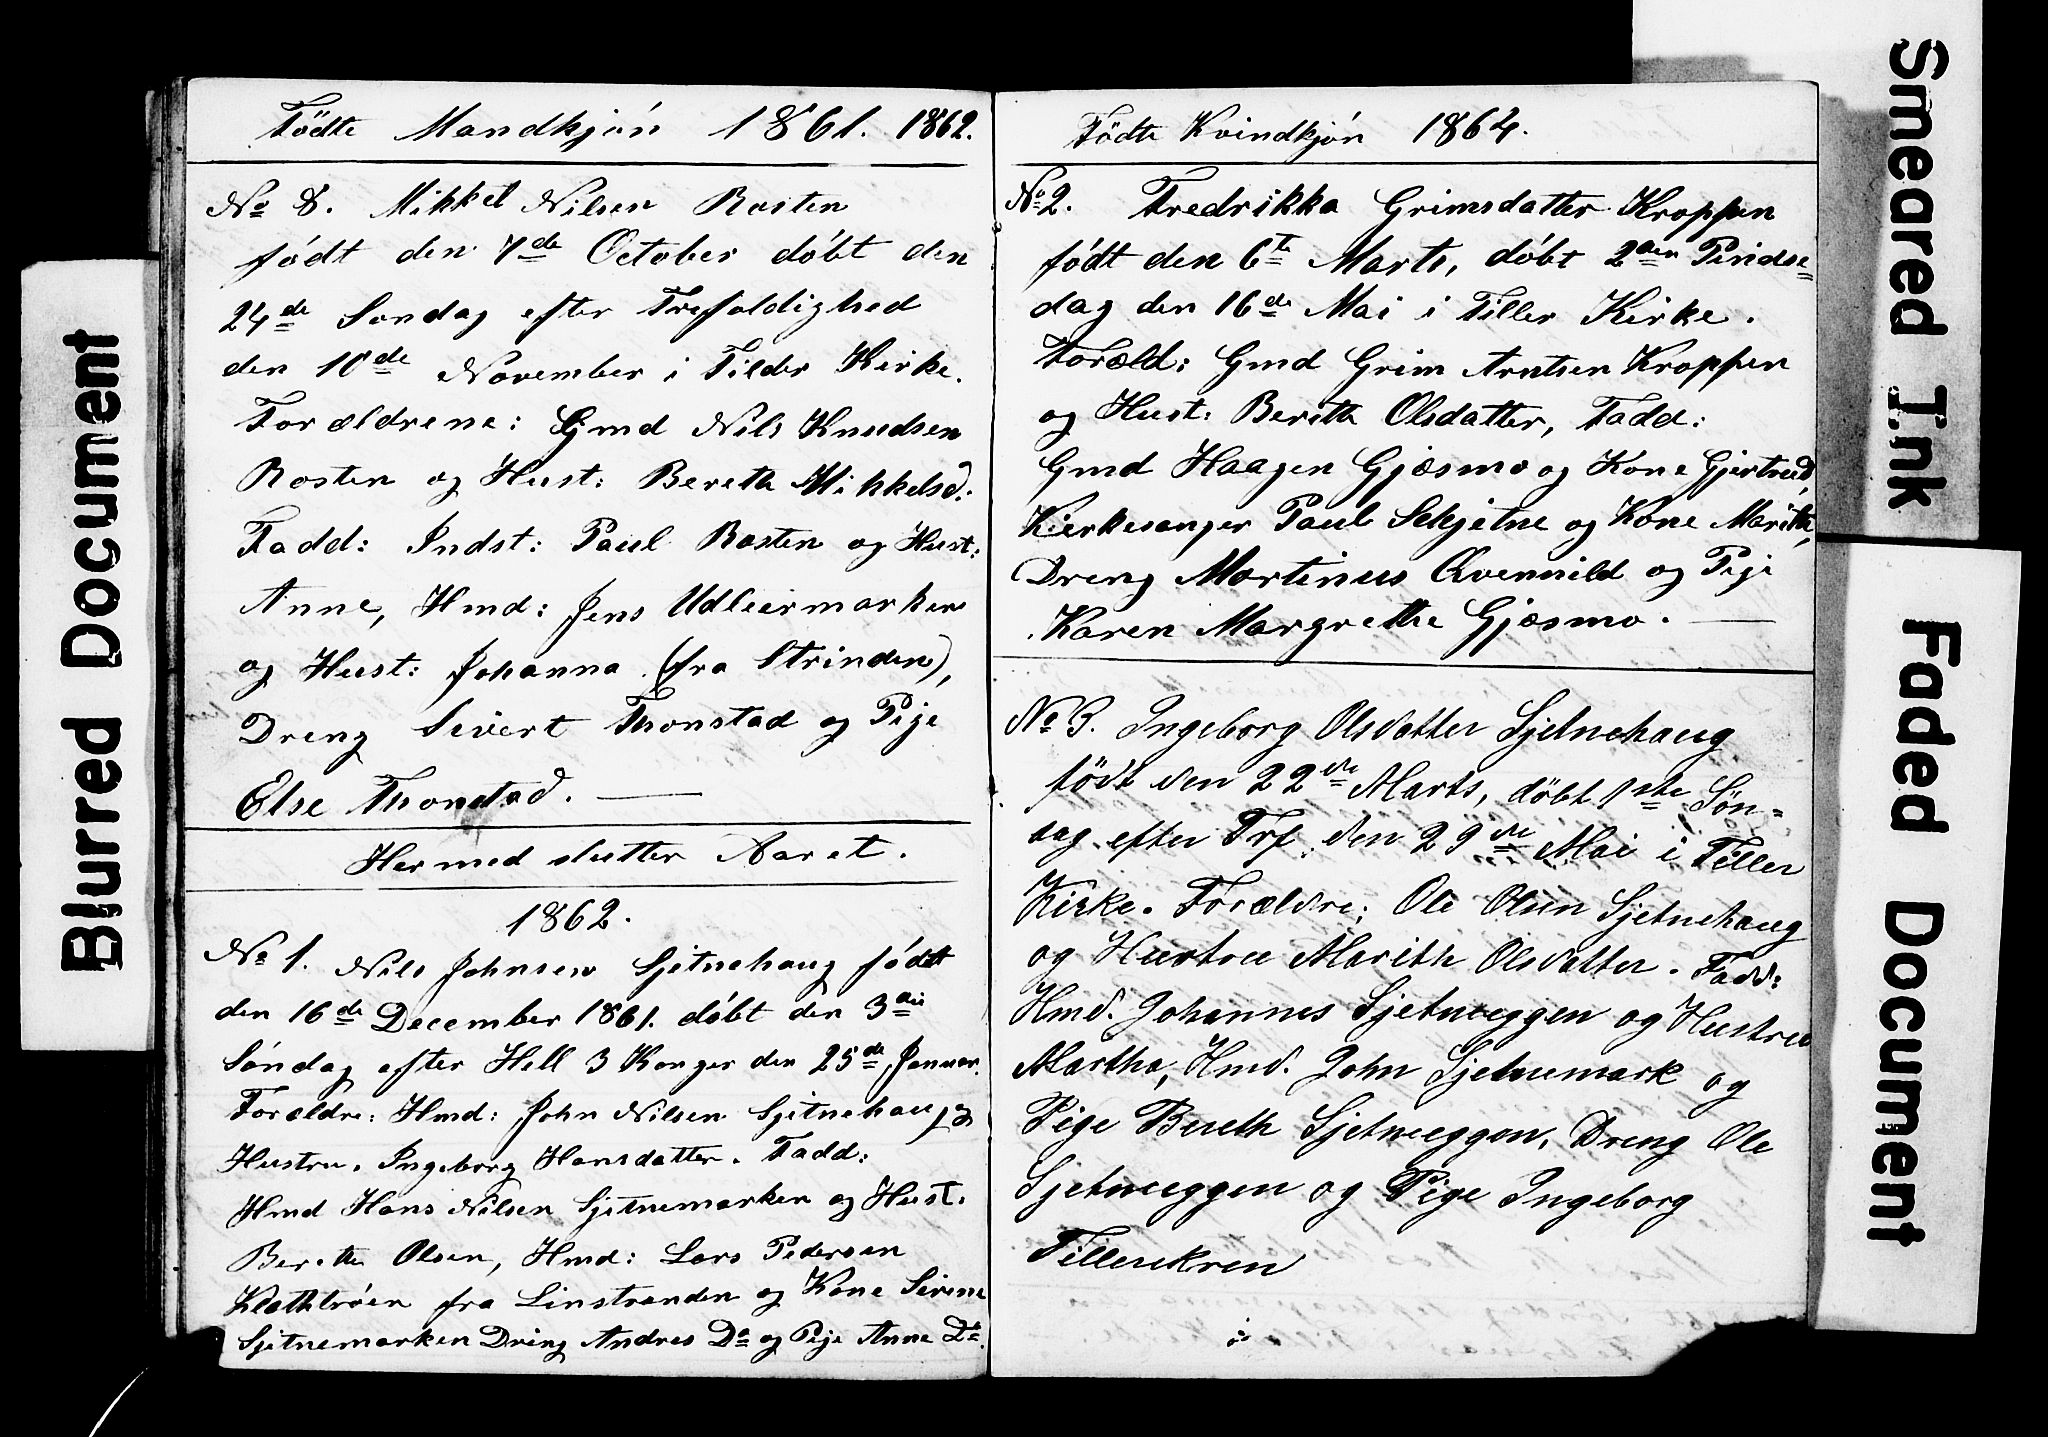 Blurred Document
Födte Mandkjón 1861. 1862.
No 8. Mikkel Nilsen Rosten
födt den 7de October döbt den
24de Søndag efter Trefoldighed
den 10de November i Tilder Kirke.
Forældrene: Gmd Nils Knudsen
Rosten og Hust: Bereth Mikkelsd:
Fadd: Indst: Paul Rosten og Hust:
Anne, Hmd: Jens Udleermarken
og Hust: Johanna (fra Strinden),
Dreng Sivert Thonstad og Pige
Else Thonstad.
Hermed slutter Aaret.
1862.
No 1. Nils Johnsen Sjetnehaug födt
den 16de December 1861. döbt den 3die
Söndag efter Hell 3 Konger den 25de Januar.
Forældre: Hmd: John Nilsen Sjetnehaug og
Hustru. Ingeborg Hansdatter. Fadd:
Hmd Hans Nilsen Sjetnemarken og Hust.
Bereth Olsen, Hmd: Lars Pedersen
fra Linstranden og Kone Sirene
Sjetnemarken Dreng Andres Do og Pige Anne Do.
Födte Kvindkjón 1864.
No 2. Fredrikka Grimsdatter Kroppen
födt den 6te Marts, döbt 2den Pindse-
dag den 16de Mai i Tiller Kirke.
Foræld: Gmd Grim Arntsen Kroppen
og Hust: Bereth Olsdatter, Fadd:
Gmd Haagen Gjæsmo og Kone Gjertrud,
Kirkesanger Paul Schjetne og Kone Marith,
Dreng Martinus Qvenild og Pige
Karen Margrethe Gjæsmo.
No 3. Ingeborg Olsdatter Sjetnehaug
född den 22de Marts, döbt 1ste Søn-
dag efter Trf. den 29de Mai i Tiller
Kirke. Forældre: Ole Olsen Sjetnehaug
og Hustru Marith Olsdatter. Fadd:
Hmd. Johannes Sjetneeggen og Hustru
Martha, Hmd. John Sjetnemark og
Pige Bereth Sjetneeggen, Dreng Ole
Sjetneeggen og Pige Ingeborg
Tillerekren
Smeared Ink
Faded Document